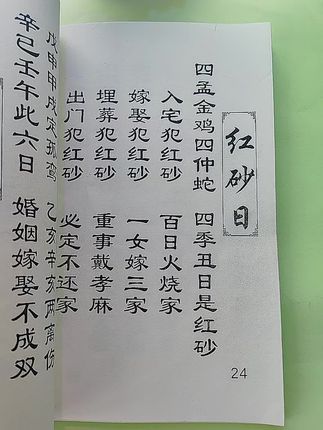 红砂日
四孟金鸡四仲蛇 四季丑日是红砂
入宅犯红砂 百日火烧家
嫁娶犯红砂 一女嫁三家
埋葬犯红砂 重事戴孝麻
出门犯红砂 必定不还家
戊申甲戌定孤鸾 乙亥辛亥两离伤
辛巳壬午此六日 婚姻嫁娶不成双
24